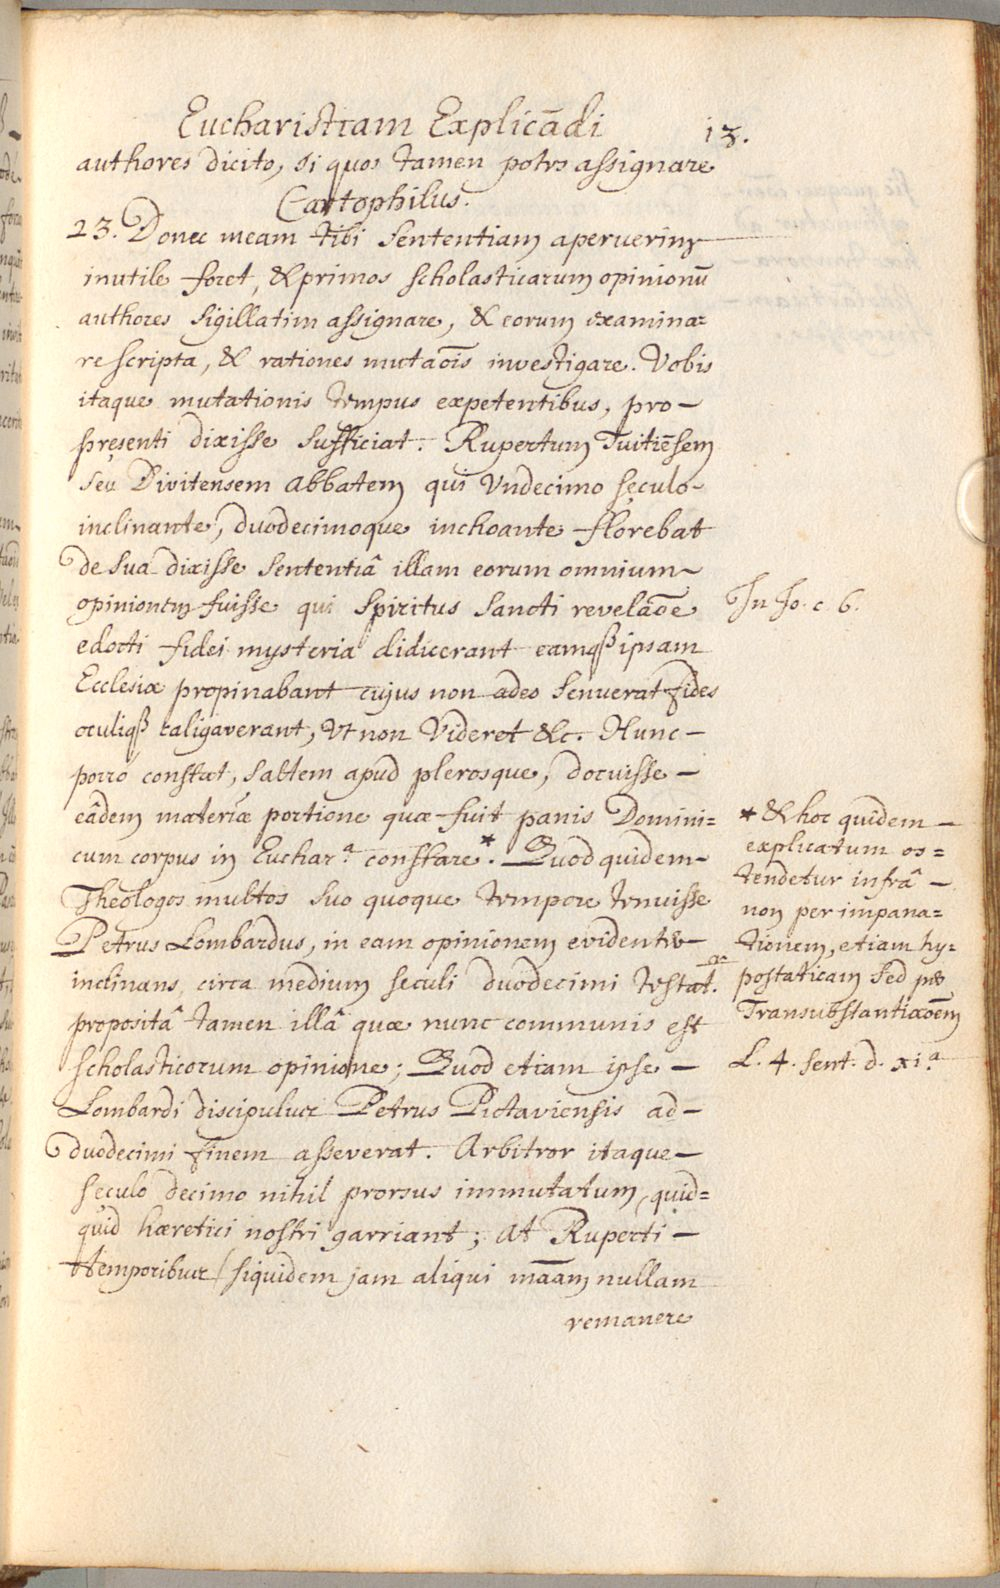 Eucharistiam Explicãdi
13.
authores dicito, si quos tamen potes assignare
Cartophilus.
23. Donec meam tibi sententiam aperuerim
inutile foret, & primos scholasticarum opinionũ
authores sigillatim assignare, & eorum examina=
re scripta, & rationes mutaõis investigare. Vobis
itaque mutationis tempus expetentibus, pro—
pręsenti dixisse sufficiat. Rupertum Tuitiẽsem
seu Divitensem abbatem qui Vndecimo sęculo—
inclinante, duodecimoque inchoante florebat
de sua dixisse sententiâ illam eorum omnium—
opinionem fuisse qui spiritus sancti revelaõe
edocti fidei mysteria didicerant eamqß ipsam
Ecclesiæ propinabant cujus non adeo senuerat fides
oculiqß caligaverant, vt non videret &c. Hunc—
porro constat, saltem apud plerosque, docuisse—
eâdem materiæ portione quæ fuit panis Domini=
cum corpus in Euchar.ª constare*. Quod quidem—
Theologos multos suo quoque tempore tenuisse
Petrus Lombardus, in eam opinionem evidenter—
inclinans circa medium seculi duodecimi testat.ur
propositâ tamen illâ quæ nunc communis est
scholasticorum opinione; Quod etiam ipse—
Lombardi discipulus Petrus Pictaviensis ad—
duodecimi finem asseverat. Arbitror itaque—
sęculo decimo nihil prorsus immutatum, quid=
quid hæretici nostri garriant; at Ruperti—
temporibus (siquidem jam aliqui mãam nullam
remanere
In Jo. c. 6.
* & hoc quidem—
explicatum os=
tendetur infrâ—
non per impana=
tionem, etiam hy=
postaticam sed per
Transubstantiaõem
L. 4. sent. d. xi.ª